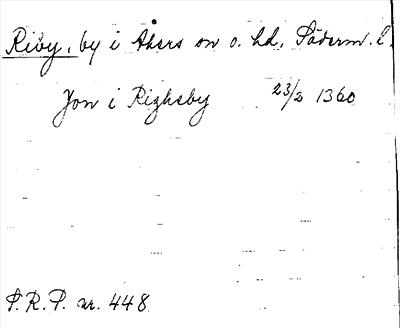 Riby, by i Åkers sn o. hd, Söderm. l.
Jon i Righsby 23/2 1360
S.R.P. nr. 448